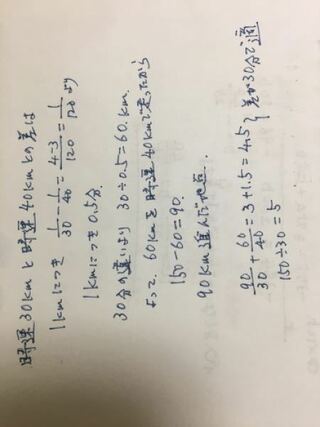 時速30kmと時速40kmとの差は
1kmにつき 1/30 - 1/40 = 4-3/120 = 1/120 より
1kmにつき0.5分.
30分の違いより 30÷0.5=60km.
よって、60kmを時速40kmで走ったから
150-60=90.
90km進んだ地点.
90/30 + 60/40 = 3+1.5=4.5 } 差が30分で適
150÷30=5